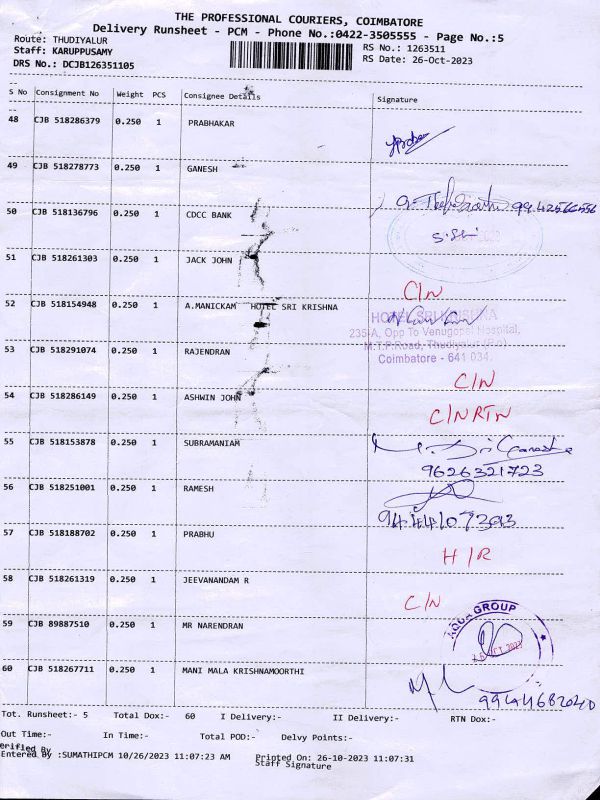 THE PROFESSIONAL COURIERS, COIMBATORE
Delivery Runsheet - PCM - Phone No.:0422-3505555 - Page No.:5
Route: THUDIYALUR RS No.: 1263511
Staff: KARUPPUSAMY RS Date: 26-Oct-2023
DRS No.: DCJB126351105
S No Consignment No Weight PCS Consignee Details Signature
48 CJB 518286379 0.250 1 PRABHAKAR
49 CJB 518278773 0.250 1 GANESH
50 CJB 518136796 0.250 1 CDCC BANK
51 CJB 518261303 0.250 1 JACK JOHN C/N
52 CJB 518154948 0.250 1 A.MANICKAM HOTEL SRI KRISHNA
HOTEL SRI KRISHNA
235-A, Opp To Venugopal Hospital,
M.T.P.Road, Thudiyalur (P.o)
Coimbatore - 641 034.
53 CJB 518291074 0.250 1 RAJENDRAN C/N
54 CJB 518286149 0.250 1 ASHWIN JOHN C/N RTN
55 CJB 518153878 0.250 1 SUBRAMANIAM
9626321723
56 CJB 518251001 0.250 1 RAMESH
57 CJB 518188702 0.250 1 PRABHU H/R
58 CJB 518261319 0.250 1 JEEVANANDAM R C/N
59 CJB 89887510 0.250 1 MR NARENDRAN
AQUA GROUP
60 CJB 518267711 0.250 1 MANI MALA KRISHNAMOORTHI
Tot. Runsheet:- 5 Total Dox:- 60 I Delivery:- II Delivery:- RTN Dox:-
Out Time:- In Time:- Total POD:- Delvy Points:-
erified By
Entered By :SUMATHIPCM 10/26/2023 11:07:23 AM Printed On: 26-10-2023 11:07:31
Staff Signature